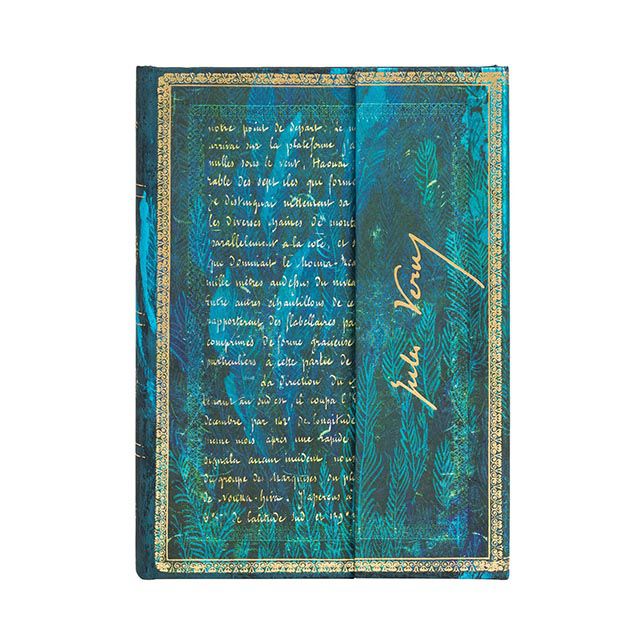 notre point de départ; le m
arrivai sur la plateforme j'a
milles sous le vent, Haouaï
rable des sept iles qui forme
Je distinguai nettement sa
les diverses chaines de mont
parallèlement a la cote, et s
que dominait le Mouna-Rea
mille mètres audessus du nivea
entre autres echantillons de ce
rapporterent des flabellaires pa
comprimés de forme gracieuse
particuliers à cette partie de
La direction du
au sud est, il coupa l'E
décembre par 142° de longitude
mois après une rapide
signala aucun incident nous
du groupe des Marquises. du pl
de Nouka-hiva. J'aperçus à
de latitude sud et 139°
Jules Verne